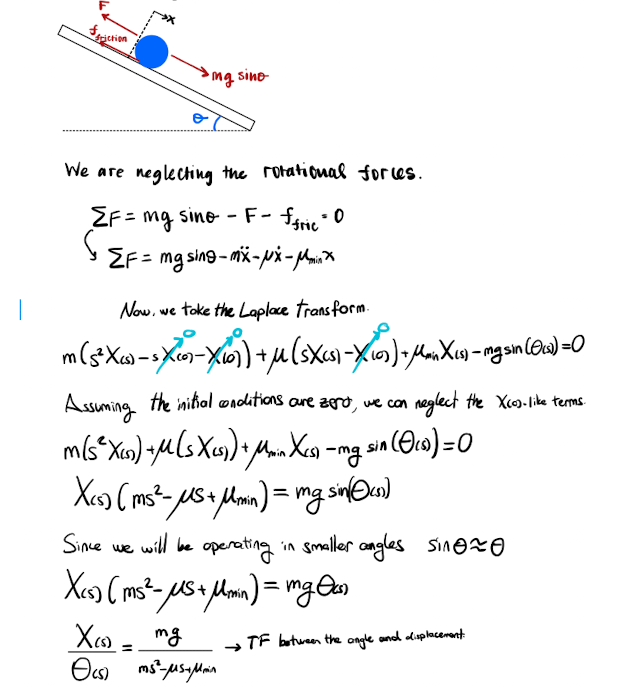 F
x
f friction
mg sinθ
θ
We are neglecting the rotational forces.
ΣF = mg sinθ - F - f_fric = 0
ΣF = mg sinθ - mẍ - μẋ - μ_min x
Now, we take the Laplace Transform.
m(s²X(s) - sX(0) - X(0)) + μ(sX(s) - X(0)) + μ_min X(s) - mg sin(Θ(s)) = 0
0 0 0
Assuming the initial conditions are zero, we can neglect the X(0)-like terms.
m(s²X(s)) + μ(sX(s)) + μ_min X(s) - mg sin(Θ(s)) = 0
X(s)(ms² - μs + μ_min) = mg sin(Θ(s))
Since we will be operating in smaller angles sinθ ≈ θ
X(s)(ms² - μs + μ_min) = mgΘ(s)
X(s)/Θ(s) = mg/(ms² - μs + μ_min) → TF between the angle and displacement.